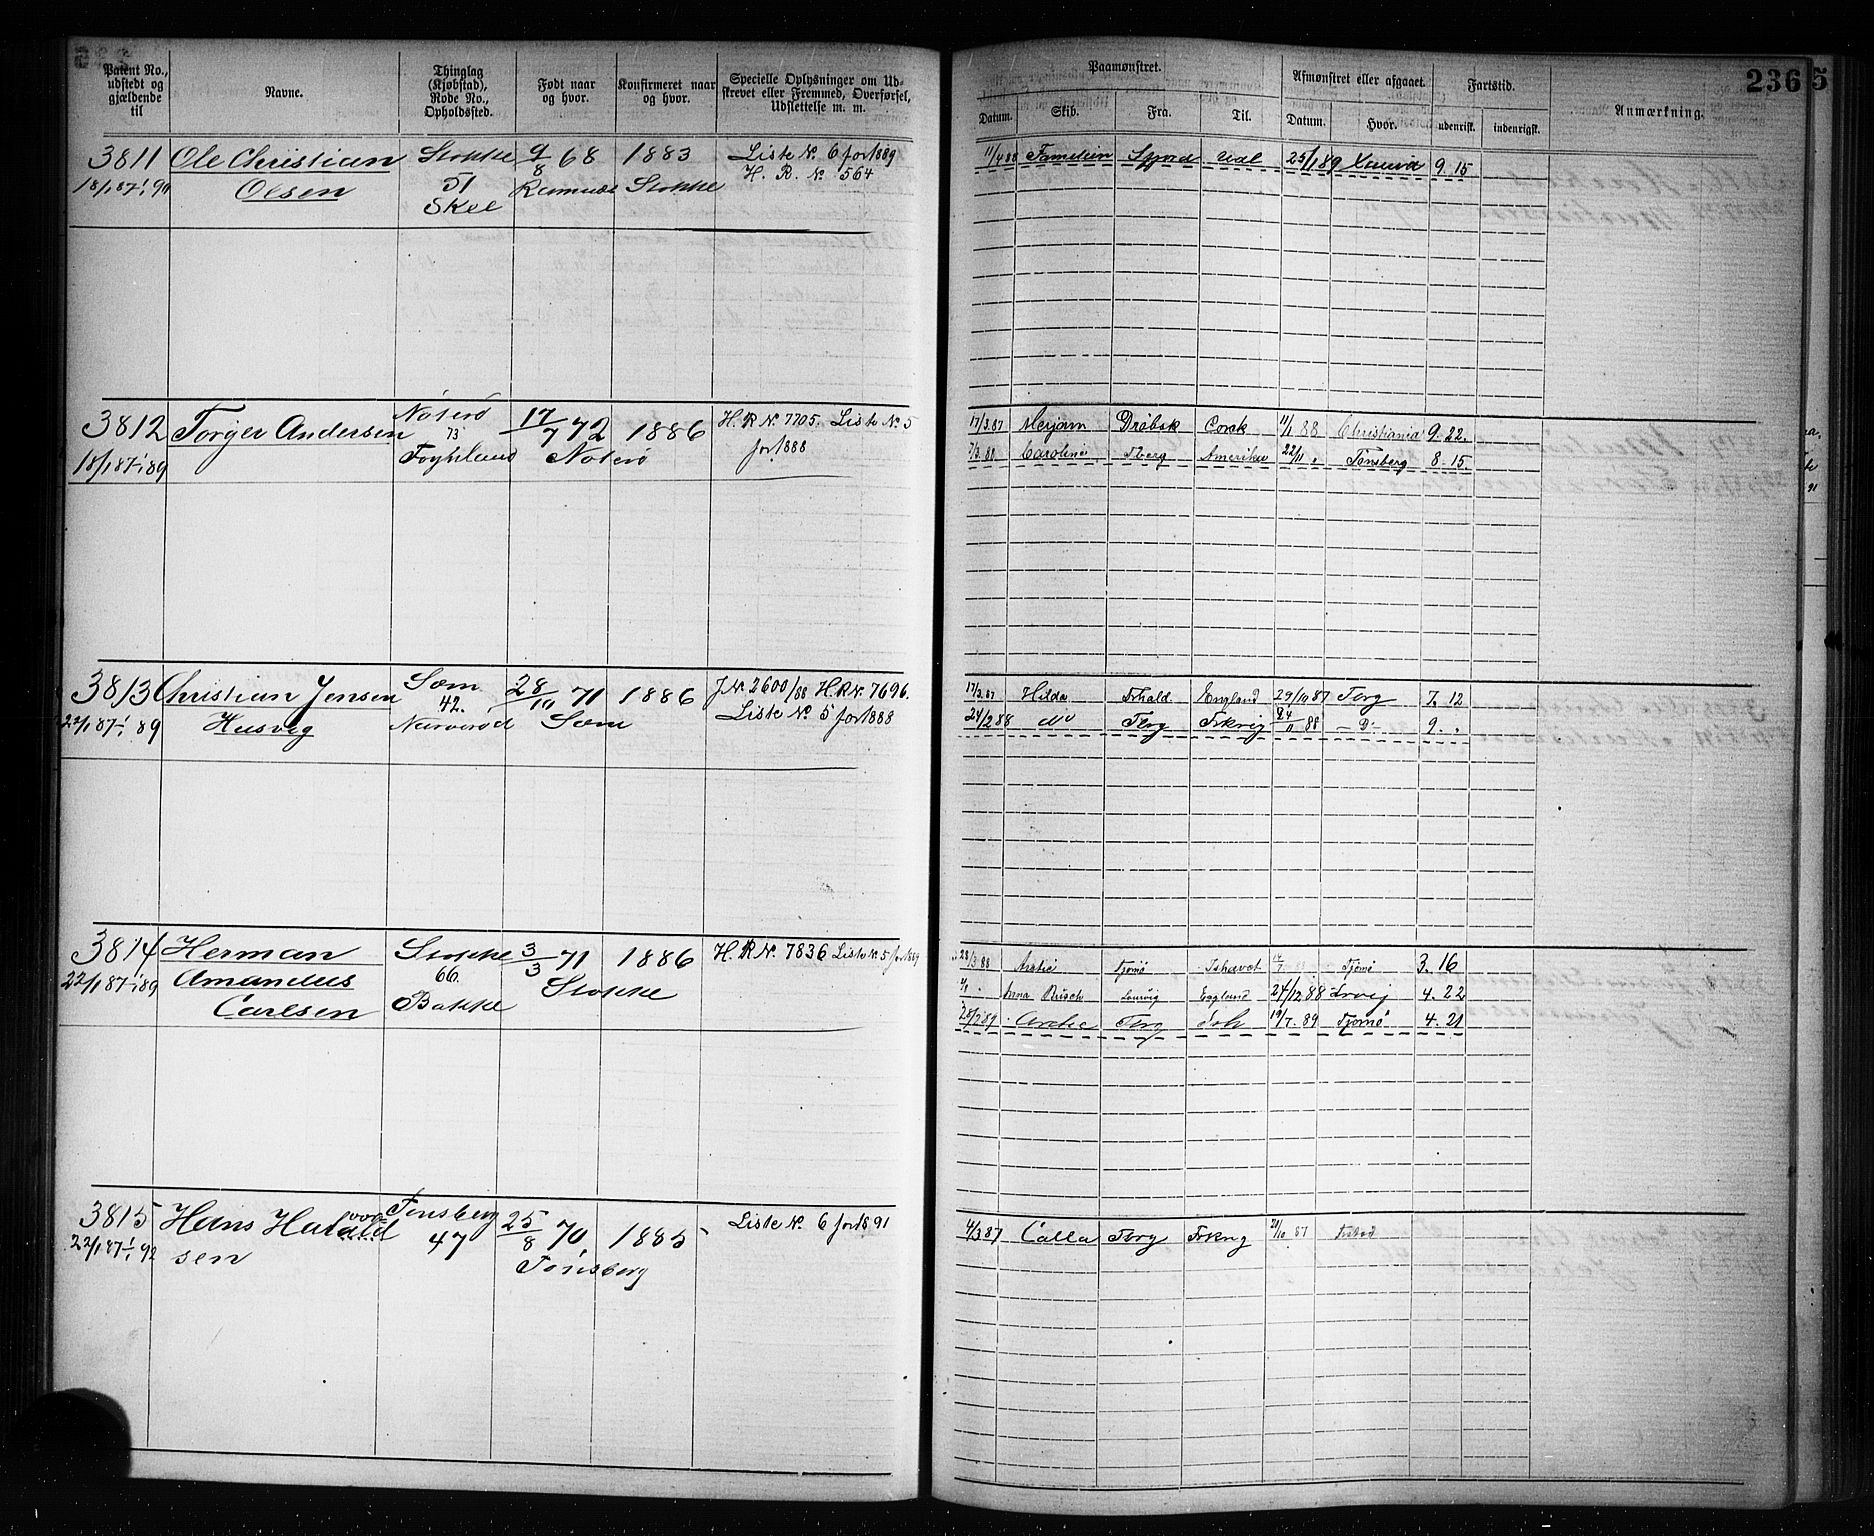 Patent No., udstedt og gjældende til
Navne.
Thinglag (Kjøbstad), Rode No., Opholdssted.
Født naar og hvor.
Konfirmeret naar og hvor.
Specielle Oplysninger om Udskrevet eller Fremmed, Overførsel, Udslettelse m. m.
Paamønstret.
Datum. Skib. Fra. Til.
Afmønstret eller afgaaet.
Datum. Hvor.
Fartstid.
udenrisk. indenrigsk.
Anmærkning.
236
5
3811 Ole Christian Stokke 9/8 68 1883 Liste No. 6 for 1889
18/1 87 1/1 90 Olsen 51 Ramnæs Stokke H. R. No 564
Skee
11/4 88 25/1 89 9. 15
3812 Torger Andersen Nøterø 17/7 72 1886 H. R No. 7705. Liste No. 5
18/1 87 1/1 89 73 Nøterø for 1888
17/3 87 Drøbak Corck 11/1 88 Christiania 9. 22.
7/3 88 Caroline Tberg Amerika 22/11 " Tønsberg 8. 15.
3813 Christian Jensen Sæm 28/10 71 1886 J No 2600/88 H. R No. 7696.
22/1 87 1/1 89 Husvig 42. Sæm Liste No. 5 for 1888
Narverød
17/3 87 Hilda Frhald England 29/10 87 Tbrg 7. 12
24/2 88 Do Tbrg Frkvig 24/11 88 - Do 9. "
3814 Herman Stokke 3/3 71 1886 H. R No. 7836 Liste No. 5 for 1889
22/1 87 1/1 89 Amandus 66. Stokke
Carlsen Bakke
28/3 88 Arctic Tjømø Ishavet Tjømø 3. 16
Anna Busch Laurvig England 24/12 88 Lrvig 4. 22
28/2 89 Arctic Tbrg Ish 19/7. 89 Tjømø 4. 21
3815 Hans Harald Tønsberg 25/8 70 1885 Liste No. 6 for 1891
22/1 87 1/1 92 sen 47 Tønsberg
4/3 87 Calla Tbrg Frkvg 87